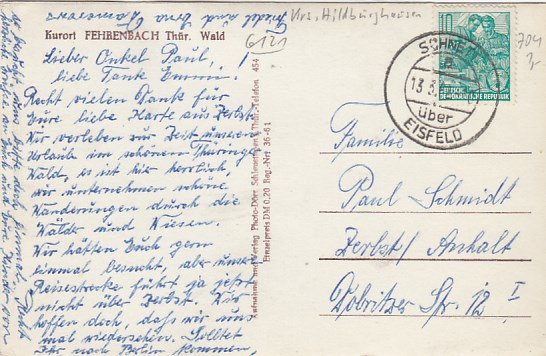 Krs. Hildburghausen
Kurort FEHRENBACH Thür. Wald
6121
Lieber Onkel Paul,
liebe Tante Emmi!
Recht vielen Dank für
Eure liebe Karte aus Zerbst.
Wir verleben zur Zeit unseren
Urlaub im schönen Thüringer
Wald, es ist hier herrlich,
wir unternehmen schöne
Wanderungen durch die
Wälder und Wiesen.
Wir hätten Euch gern
einmal besucht, aber unsere
Reisestrecke führt ja jetzt
nicht über Zerbst. Wir
hoffen doch, daß wir uns
mal wiedersehen. Solltet
Ihr nach Berlin kommen,
Aufnahme und Verlag Photo-Dörr Schleusingen i. Thür. Telefon 454
Einzelpreis DM 0,20 Reg.-Nr. 36-61
10
DEUTSCHE
DEMOKRATISCHE REPUBLIK
SCHNE
13.
über
EISFELD
704
Familie
Paul Schmidt
Zerbst/Anhalt
Dobritzer Str. 12 I